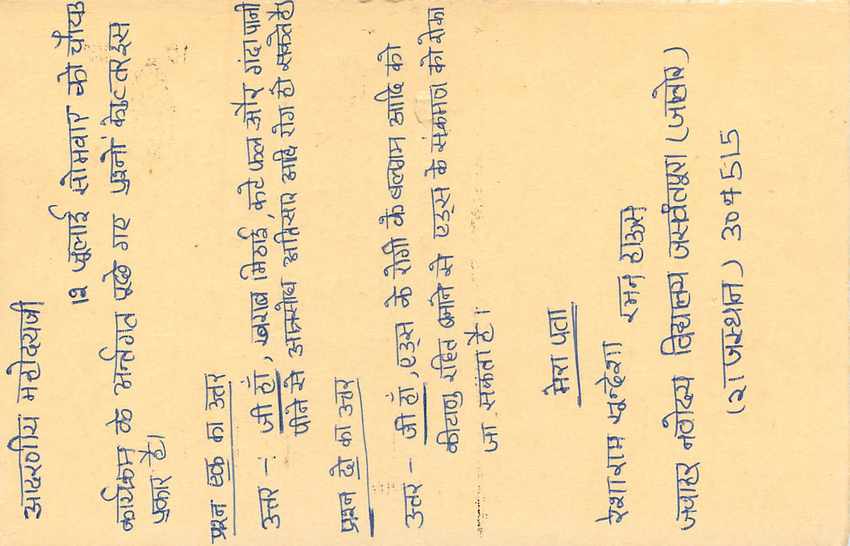 आदरणीय महोदयजी
12 जुलाई सोमवार को चौथ
कार्यक्रम के अर्न्तगत पूछे गए प्रश्नों के उत्तर इस
प्रकार है।
प्रश्न एक का उत्तर
उत्तर -: जी हाँ, खराब मिठाई, कटे फल और गंदा पानी
पीने से आन्त्रशोथ अतिसार आदि रोग हो सकते है।
प्रश्न दो का उत्तर
उत्तर - जी हाँ, एड्स के रोगी के बलगम आदि को
कीटाणु रहित बनाने से एड्स के संक्रमण को रोका
जा सकता है।
मेरा पता
रेशाराम खुन्देशा रमन हाऊस
जवाहर नवोदय विद्यालय जसवंतपुरा (जालोर)
(राजस्थान) 304515